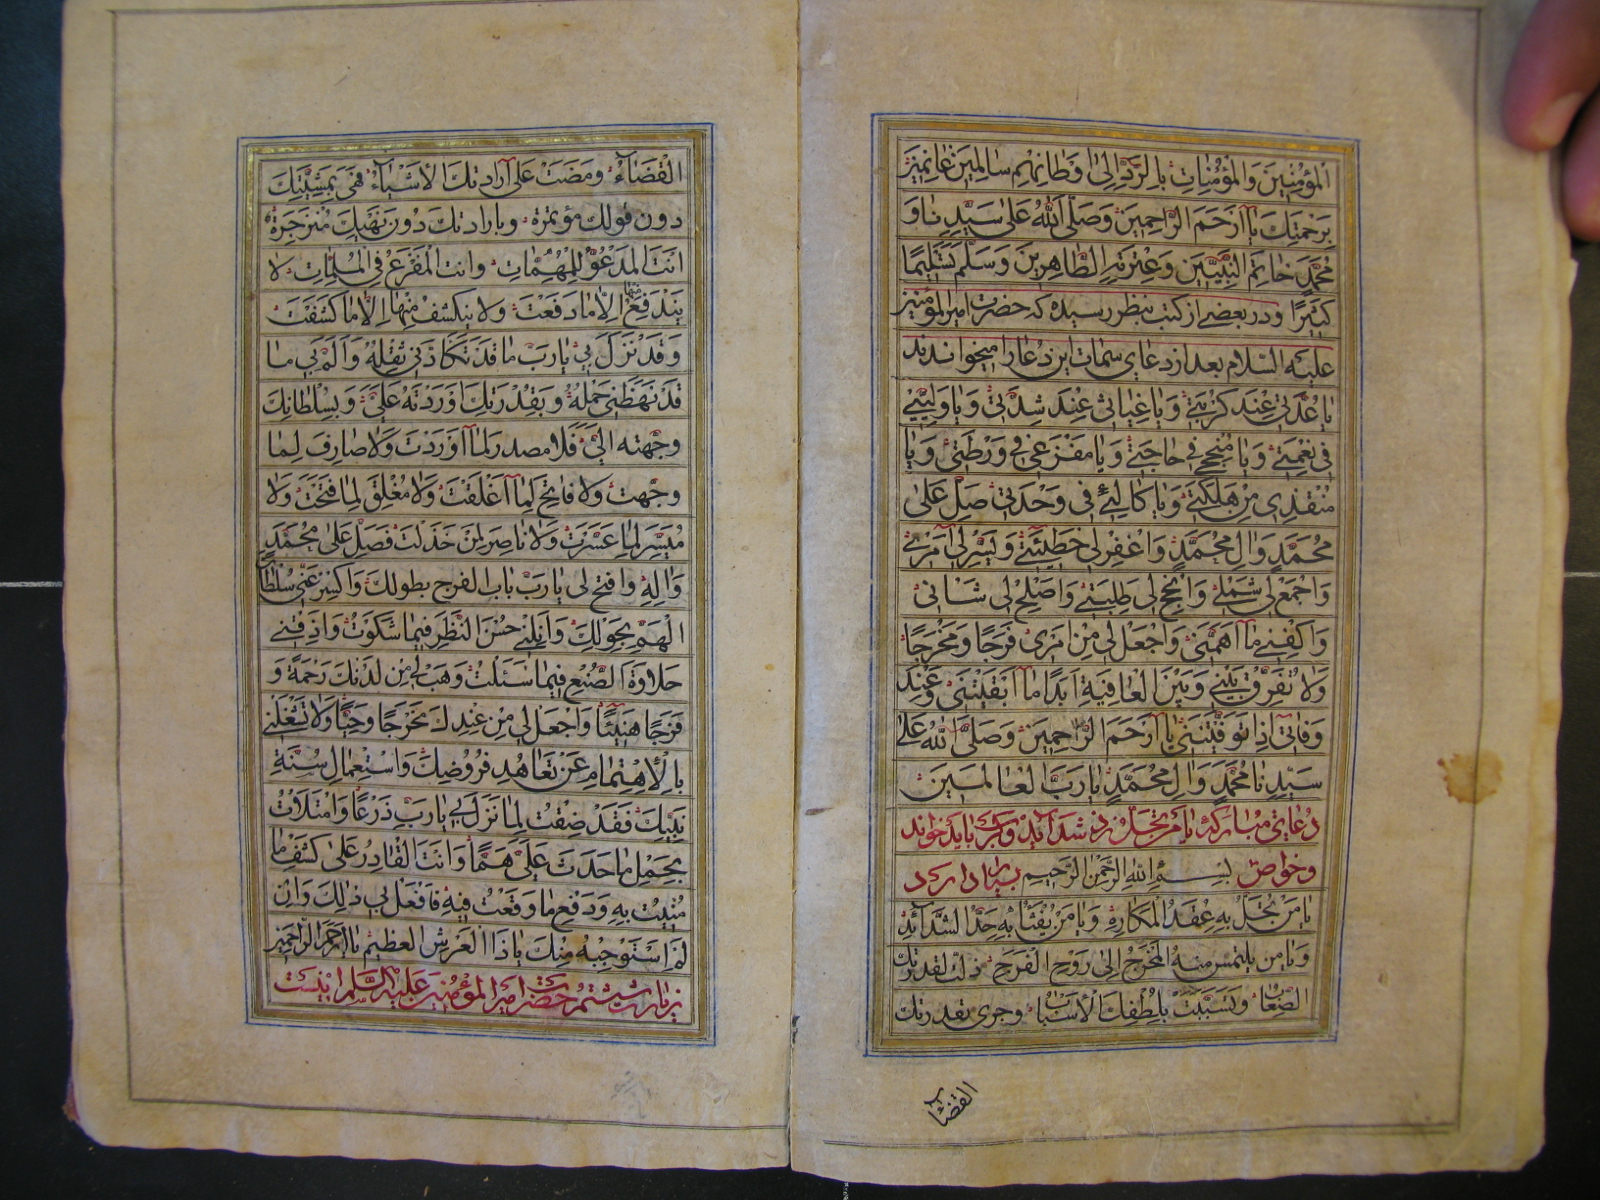 المؤمنين والمؤمنات بالرد الى وطانهم سالمين غانمين
برحمتك يا ارحم الراحمين وصلى الله على سيدنا و
محمد خاتم النبيين وعترته الطاهرين وسلم تسليما
كثيرا ودر بعضى از كتب بنظر رسيده كه حضرت امير المؤمنين
عليه السلام بعد از دعاى سمات اين دعا را ميخواندند
يا عدتى عند كربتى ويا غياثى عند شدتى ويا وليى
فى نعمتى ويا منجحى فى حاجتى ويا مفزعى فى ورطتى ويا
منقذى من هلكتى ويا كالئى فى وحدتى صل على
محمد وال محمد واغفر لى خطيئتى ويسر لى امرى
واجمع لى شملى وانجح لى طلبتى واصلح لى شانى
واكفنى ما اهمنى واجعل لى من امرى فرجا ومخرجا
ولا تفرق بينى وبين العافية ابدا ما ابقيتنى وعند
وفاتى اذا توفيتنى يا ارحم الراحمين وصلى الله على
سيدنا محمد وال محمد يا رب العالمين
دعاى مباركه يا من تحل نزد شدايد وكرب بايد خواند
وخواص بسم الله الرحمن الرحيم بسيار دارد
يا من تحل به عقد المكاره ويا من يفثأ به حد الشدآئد
ويا من يلتمس منه المخرج الى روح الفرج ذلت لقدرتك
الصعاب وتسببت بلطفك الأسباب وجرى بقدرتك
القضاء
القضآء ومضت على آرادتك الأشيآء فهى بمشيتك
دون قولك مؤتمرة وبارادتك دون نهيك منزجرة
انت المدعو للمهمات وانت المفزع فى الملمات لا
يندفع منها الا ما دفعت ولا ينكشف منها الا ما كشفت
وقد نزل بى يا رب ما قد تكادنى ثقله والم بى ما
قد بهظنى حمله وبقدرتك اوردته على وبسلطانك
وجهته الى فلا مصدر لما اوردت ولا صارف لما
وجهت ولا فاتح لما اغلقت ولا مغلق لما فتحت ولا
ميسر لما عسرت ولا ناصر لمن خذلت فصل على محمد
واله وافتح لى يا رب باب الفرج بطولك واكسر عنى سلطان
الهم بحولك وانلنى حسن النظر فيما شكوت واذقنى
حلاوة الصنع فيما سئلت وهب لى من لدنك رحمة و
فرجا هنيئا واجعل لى من عندك مخرجا وحيا ولا تشغلنى
بالأهتمام عن تعاهد فروضك واستعمال سنة
نبيك فقد ضقت لما نزل بى يا رب ذرعا وامتلات
بحمل ما حدث على هما وانت القادر على كشف ما
منيت به ودفع ما وقعت فيه فافعل بى ذلك وان
لم استوجبه منك يا ذا العرش العظيم يا ارحم الراحمين
زيارت ششتم حضرت امير المؤمنين عليه السلم اينست